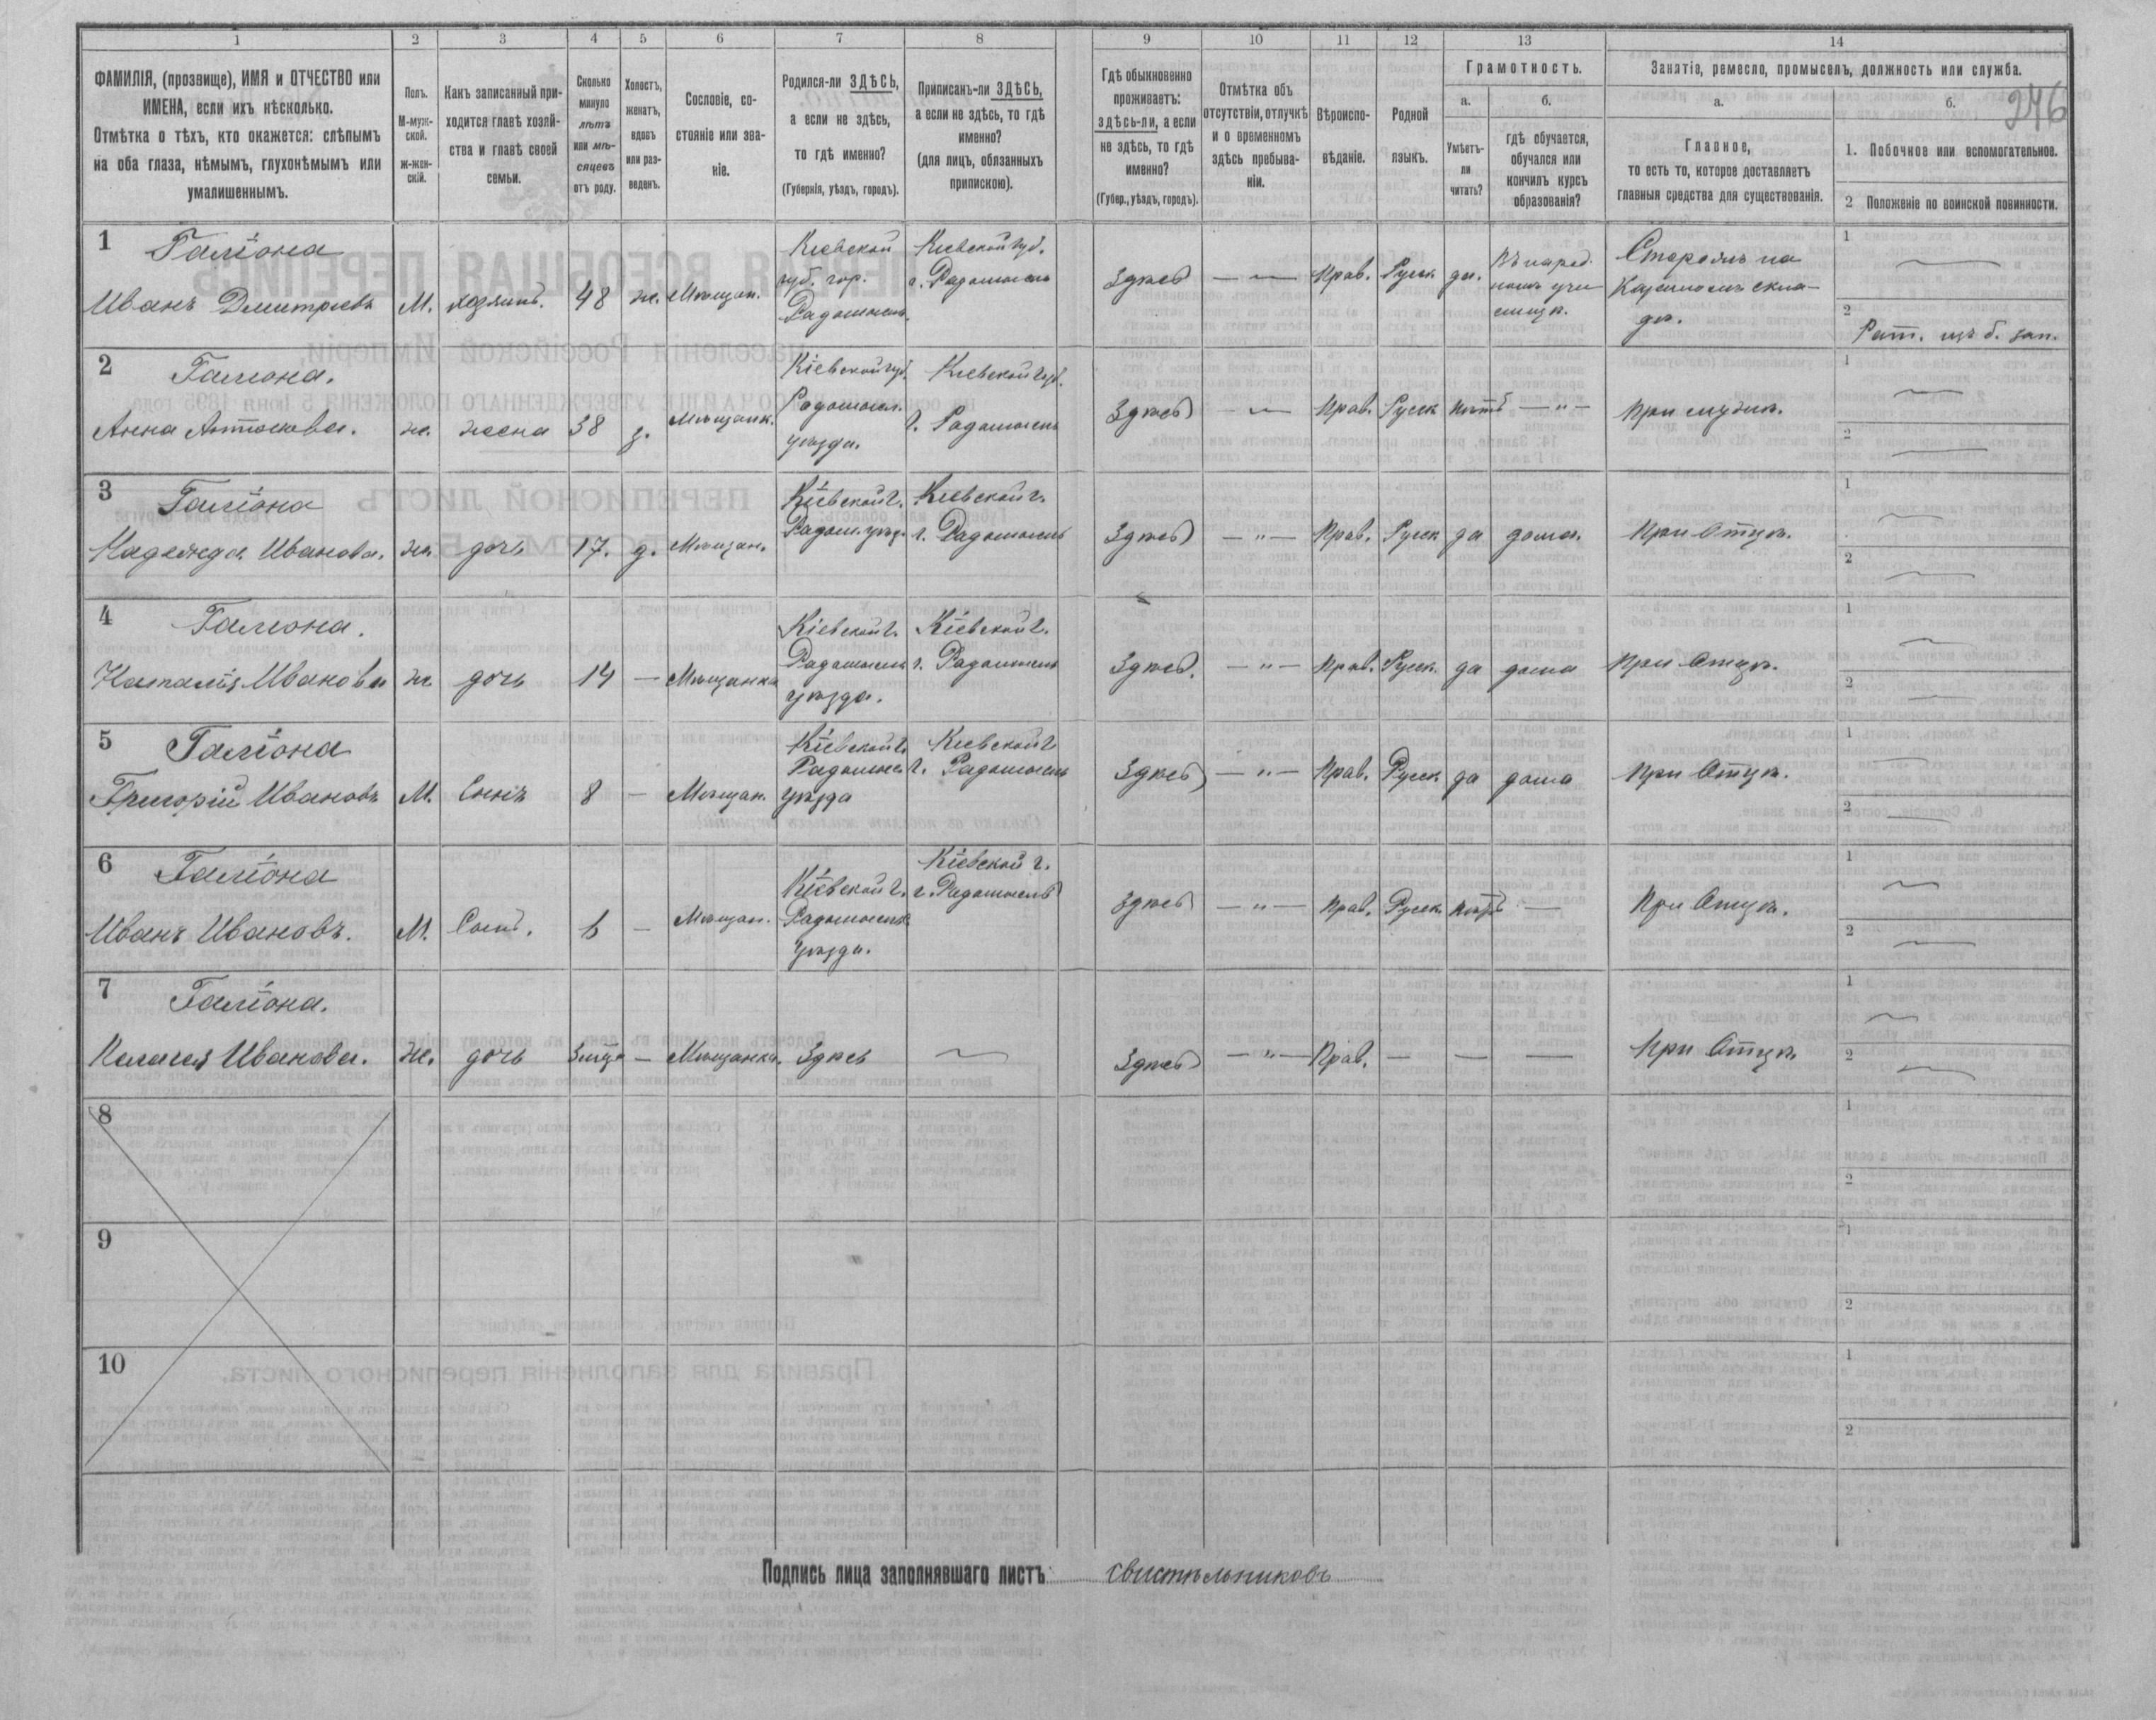 1 2 3 4 5 6 7 8 9 10 11 12 13 14
ФАМИЛІЯ, (прозвище), ИМЯ и ОТЧЕСТВО или
ИМЕНА, если ихъ нѣсколько.
Отмѣтка о тѣхъ, кто окажется: слѣпымъ
на оба глаза, нѣмымъ, глухонѣмымъ или
умалишеннымъ.
Полъ.
М-муж-
ской.
ж-жен-
скій.
Какъ записанный при-
ходится главѣ хозяй-
ства и главѣ своей
семьи.
Сколько
минуло
лѣтъ
или мѣ-
сяцевъ
отъ роду.
Холостъ,
женатъ,
вдовъ
или раз-
веденъ.
Сословіе, со-
стояніе или зва-
ніе.
Родился-ли ЗДѢСЬ,
а если не здѣсь,
то гдѣ именно?
(Губернія, уѣздъ, городъ).
Приписанъ-ли ЗДѢСЬ,
а если не здѣсь, то гдѣ
именно?
(для лицъ, обязанныхъ
припискою).
Гдѣ обыкновенно
проживаетъ:
здѣсь-ли, а если
не здѣсь, то гдѣ
именно?
(Губер., уѣздъ, городъ).
Отмѣтка объ
отсутствіи, отлучкѣ
и о временномъ
здѣсь пребыва-
ніи.
Вѣроиспо-
вѣданіе.
Родной
языкъ.
Грамотность.
а.
Умѣетъ-
ли
читать?
б.
гдѣ обучается,
обучался или
кончилъ курсъ
образованія?
Занятіе, ремесло, промыселъ, должность или служба.
а.
Главное,
то есть то, которое доставляетъ
главныя средства для существованія.
б.
246
1. Побочное или вспомогательное.
2 Положеніе по воинской повинности.
1 Галіона
Иванъ Дмитріевъ
М.
хозяинъ.
48
ж.
Мѣщан.
Кіевской
губ. гор.
Радомысль.
Кіевской губ.
г. Радомысль
Здѣсь
— " —
Прав.
Русск
да.
Въ народ.
номъ учи
лищѣ.
Сторожъ на
Казенномъ скла-
дѣ.
1
2
Рат. изъ б. зап.
2 Галіона.
Анна Антонова.
ж.
жена
38
з.
Мѣщанк.
Кіевской губ.
Радомысл.
уѣзда.
Кіевской губ.
г. Радомысль
Здѣсь
— " —
Прав.
Русск
нѣтъ
— " —
при мужѣ.
1
2
3 Галіона
Надежда Иванова.
ж.
дочь
17.
д.
Мѣщан.
Кіевской г.
Радом. уѣзд.
Кіевской г.
г. Радомысль
Здѣсь
— " —
Прав.
Русск
да
дома.
При Отцѣ.
1
2
4 Галіона.
Наталія Иванова
ж.
дочь
14
—
Мѣщанка
Кіевской г.
Радомысль
уѣзда.
Кіевской г.
г. Радомысль
Здѣсь.
— " —
Прав.
Русск.
да
дома
При Отцѣ.
1
2
5 Галіона
Григорій Ивановъ
М.
Сынъ
8
—
Мѣщан.
Кіевской г.
Радомысл
уѣзда
Кіевской г
г. Радомысль
Здѣсь
— " —
Прав.
Русск
да
дома
При Отцѣ.
1
2
6 Галіона
Иванъ Ивановъ.
М.
Сынъ.
6
—
Мѣщан.
Кіевской г.
Радомысль
Уѣзда.
Кіевской г.
г. Радомысль
Здѣсь
— " —
Прав.
Русск.
нѣтъ
—
При Отцѣ.
1
2
7 Галіона.
Иванова.
Ж.
дочь
—
Мѣщанка.
Здѣсь
Здѣсь
— " —
Прав.
—
—
—
При Отцѣ
1
2
8
1
2
9
1
2
10
1
2
Подпись лица заполнявшаго листъ Свистѣльниковъ